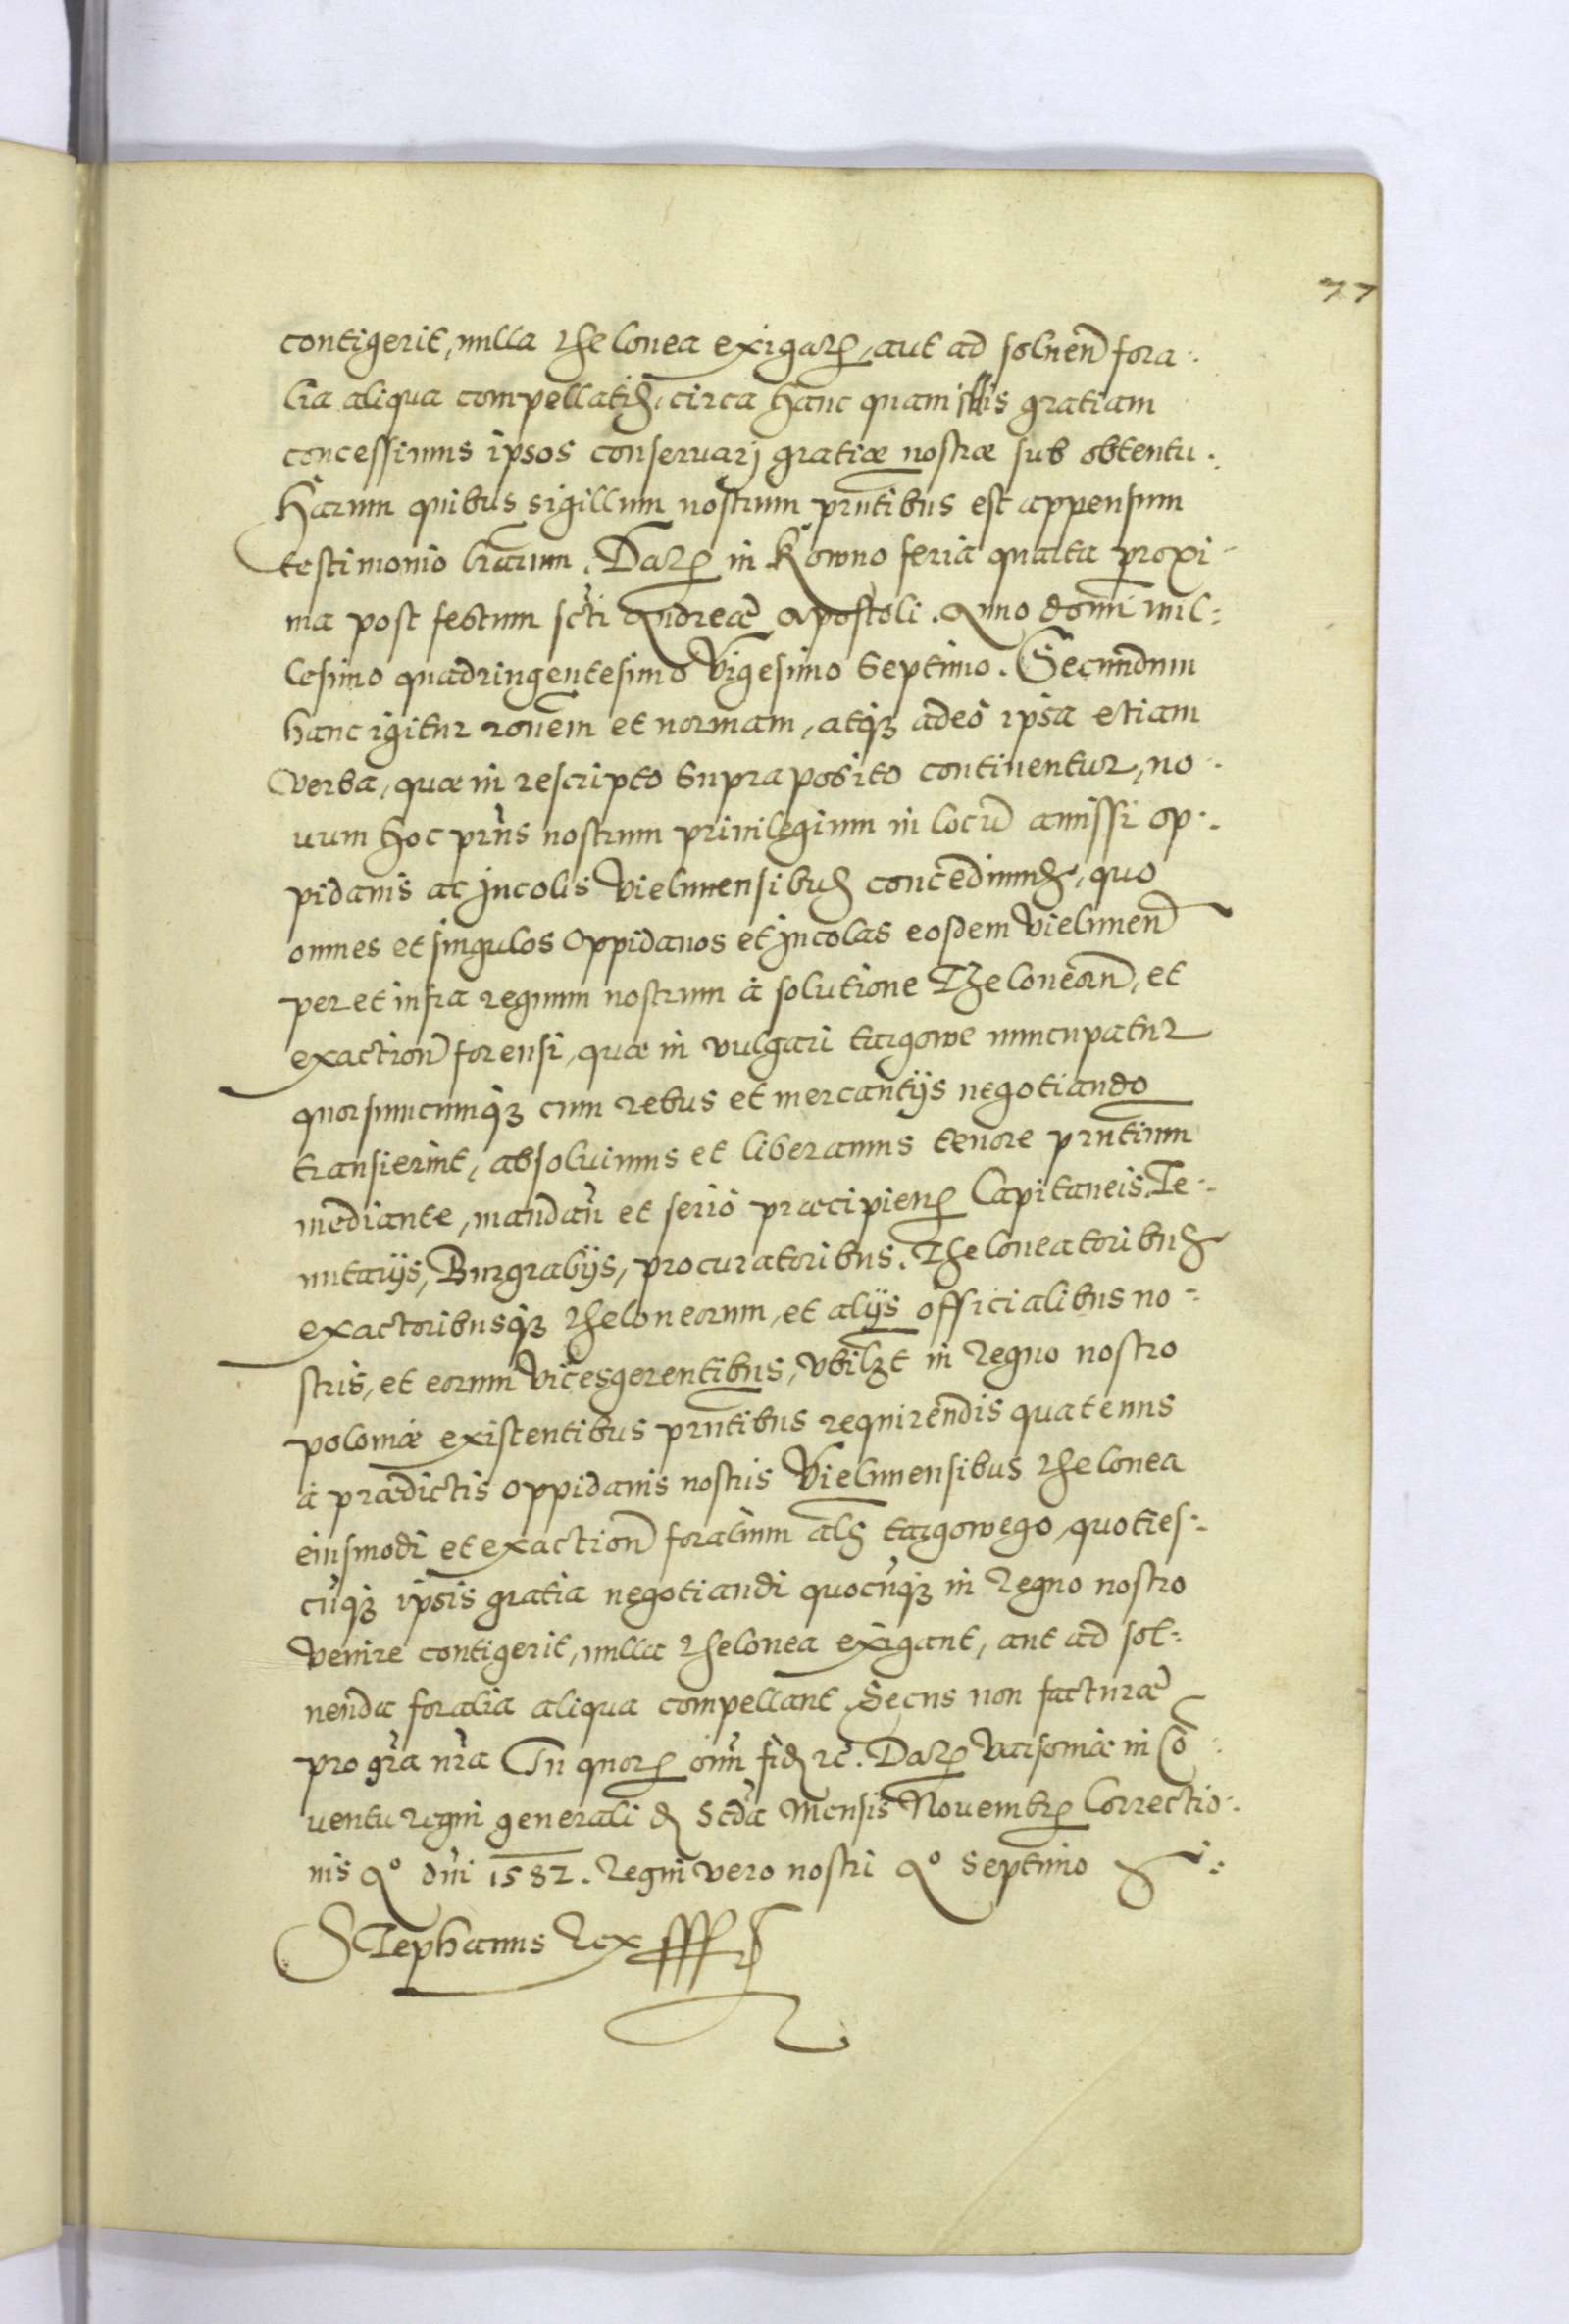 77
contigerit, nulla thelonea exigatis, aut ad soluend fora⸗
lia aliqua compellatis, circa hanc quam illis gratiam
concessimus ipsos conseruarj gratiæ nostræ sub obtentu.
Harum quibus sigillum nostrum pr̃ntibus est appensum
testimonio lr̃arum. Datis in Kowno feria quarta proxi⸗
ma post festum scti Andreæ Apostoli. Anno domi mil⸗
lesimo quadringentesimo Vigesimo Septimo. Secundum
hanc igitur ronem et normam, atq3 adeo ipsa etiam
verba, quæ in rescripto supra posito continentur, no⸗
uum hoc pr̃ns nostrum priuilegium in locũ amissi op⸗
pidanis ac jncolis Vielunensibus concedimus, quo
omnes et singulos oppidanos et jncolas eosdem Vielunen
per et infra regnum nostrum à solutione Theloneorũ, et
exaction forensi, quæ in vulgari targowe nuncupatur
quorsumcunq3 cum rebus et mercantijs negotiando
transierint, absoluimus et liberamus tenore pr̃ntium
mediante, mandañ et serio præcipien Capitaneis, Te⸗
nutarijs, Burgrabijs, procuratoribus, Theloneatoribus
exactoribusq3 theloneorum, et alijs officialibus no⸗
stris, et eorum vicesgerentibus, vbilzt in Regno nostro
poloniæ existentibus pr̃ntibus requirendis quatenus
à prædictis oppidanis nostris Vielunensibus thelonea
eiusmodi et exaction foralium als targowego, quoties⸗
cũq3 ipsis gratia negotiandi quocũq3 in Regno nostro
venire contigerit, nulla thelonea exigant, aut ad sol⸗
uenda foralia aliqua compellant. Secus non facturæ
pro gr̃a nr̃a In quor oim̃ fid rc̃. Datis Varsouiæ in Cõ⸗
uentu regni generali d Scda Mensis Nouembr Correctio⸗
nis Aº dñi 1582. Regni vero nostri Aº Septimo
Stephanus Rex